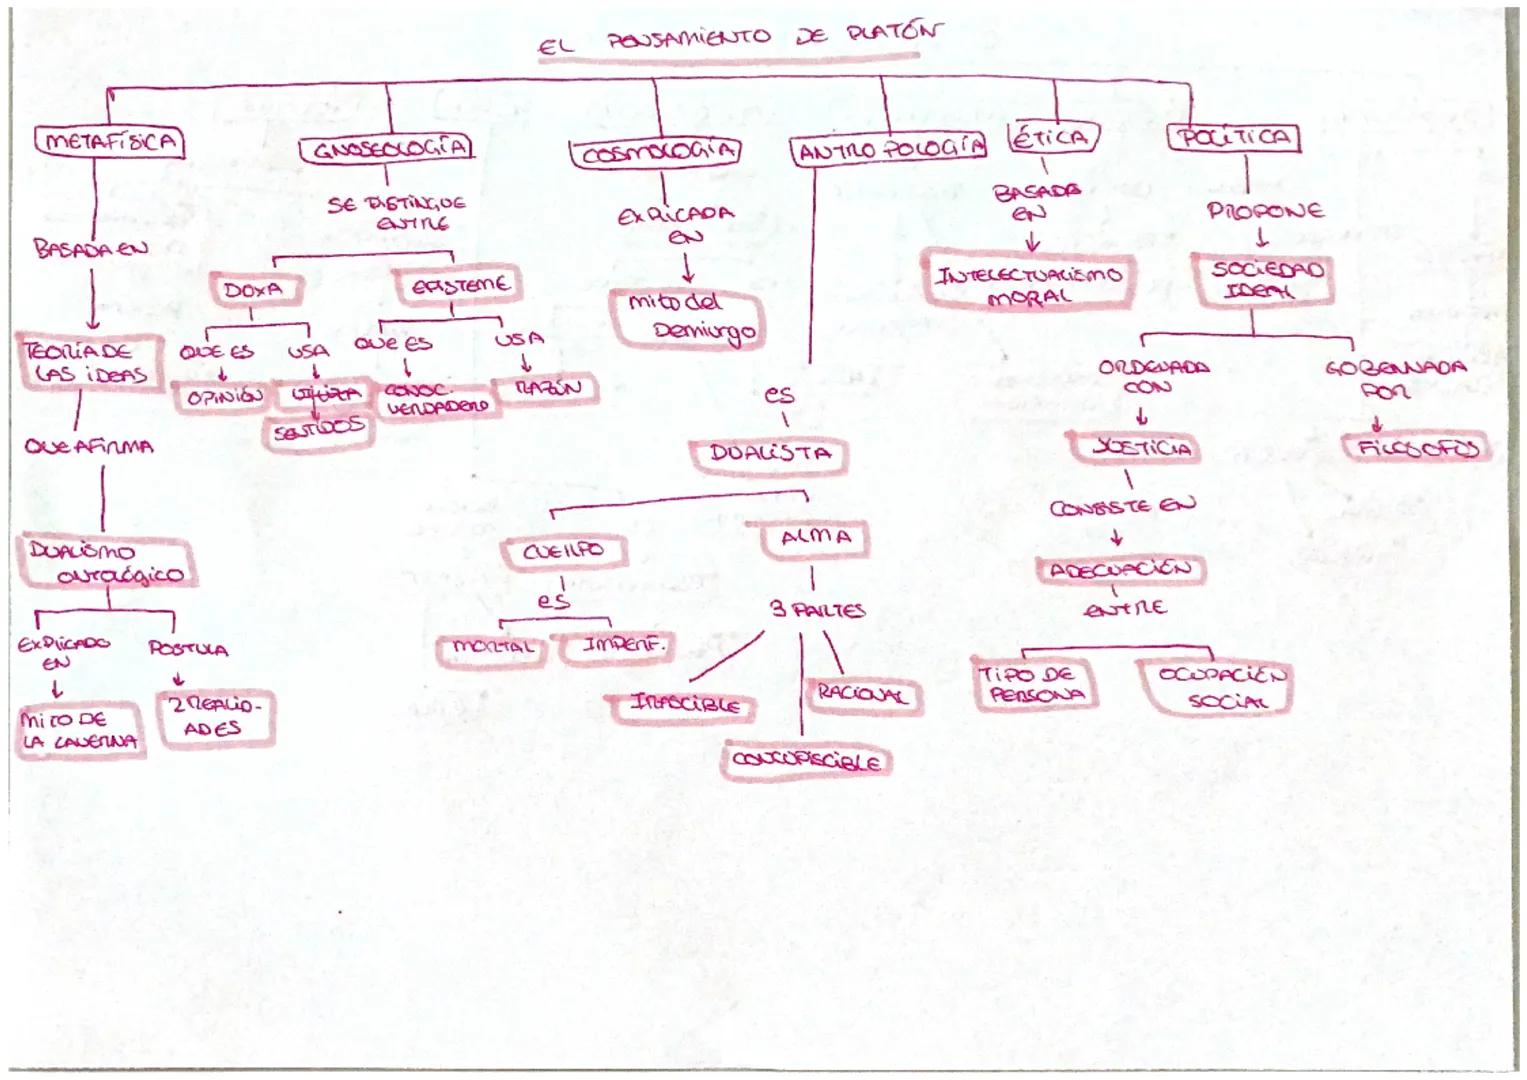 EL PENSAMIENTO DE PLATÓN
METAFÍSICA
BASADA EN
TEORÍA DE
LAS IDEAS
QUE AFIRMA
DUALISMO
ONTOLÓGICO
EXPLICADO
EN
MITO DE
LA CAVERNA
POSTULA
2 REALID-
ADES
GNOSEOLOGÍA
SE DISTINGUE
ENTRE
DOXA
QUE ES
OPINIÓN
USA
UTILIZA
SENTIDOS
EPISTEME
QUE ES
CONOC.
VERDADERO
USA
RAZÓN
COSMOLOGÍA
EXPLICADA
EN
mito del
Demiurgo
ANTROPOLOGÍA
es
DUALISTA
CUERPO
es
MORTAL
IMPERF.
ALMA
3 PARTES
IRASCIBLE
CONCUPISCIBLE
RACIONAL
ÉTICA
BASADA
EN
INTELECTUALISMO
MORAL
POLÍTICA
PROPONE
SOCIEDAD
IDEAL
ORDENADA
CON
JUSTICIA
CONSISTE EN
ADECUACIÓN
ENTRE
TIPO DE
PERSONA
OCUPACIÓN
SOCIAL
GOBERNADA
POR
FILÓSOFOS